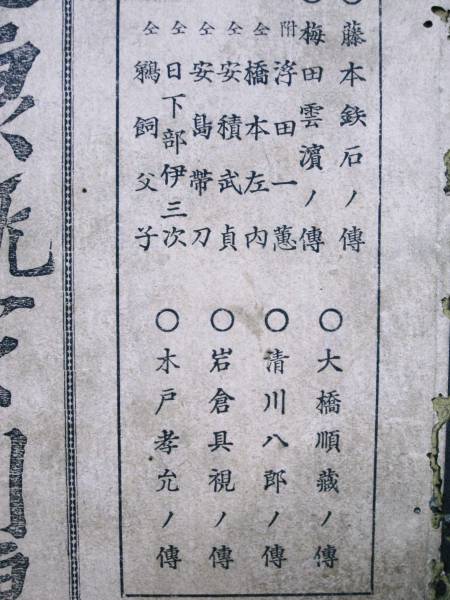 ○藤本鉄石ノ傳
○梅田雲濱ノ傳
附浮田一蕙
仝橋本左内
仝安積武貞
仝安島帶刀
仝日下部伊三次
仝鵜飼父子
○大橋順藏ノ傳
○清川八郎ノ傳
○岩倉具視ノ傳
○木戸孝允ノ傳